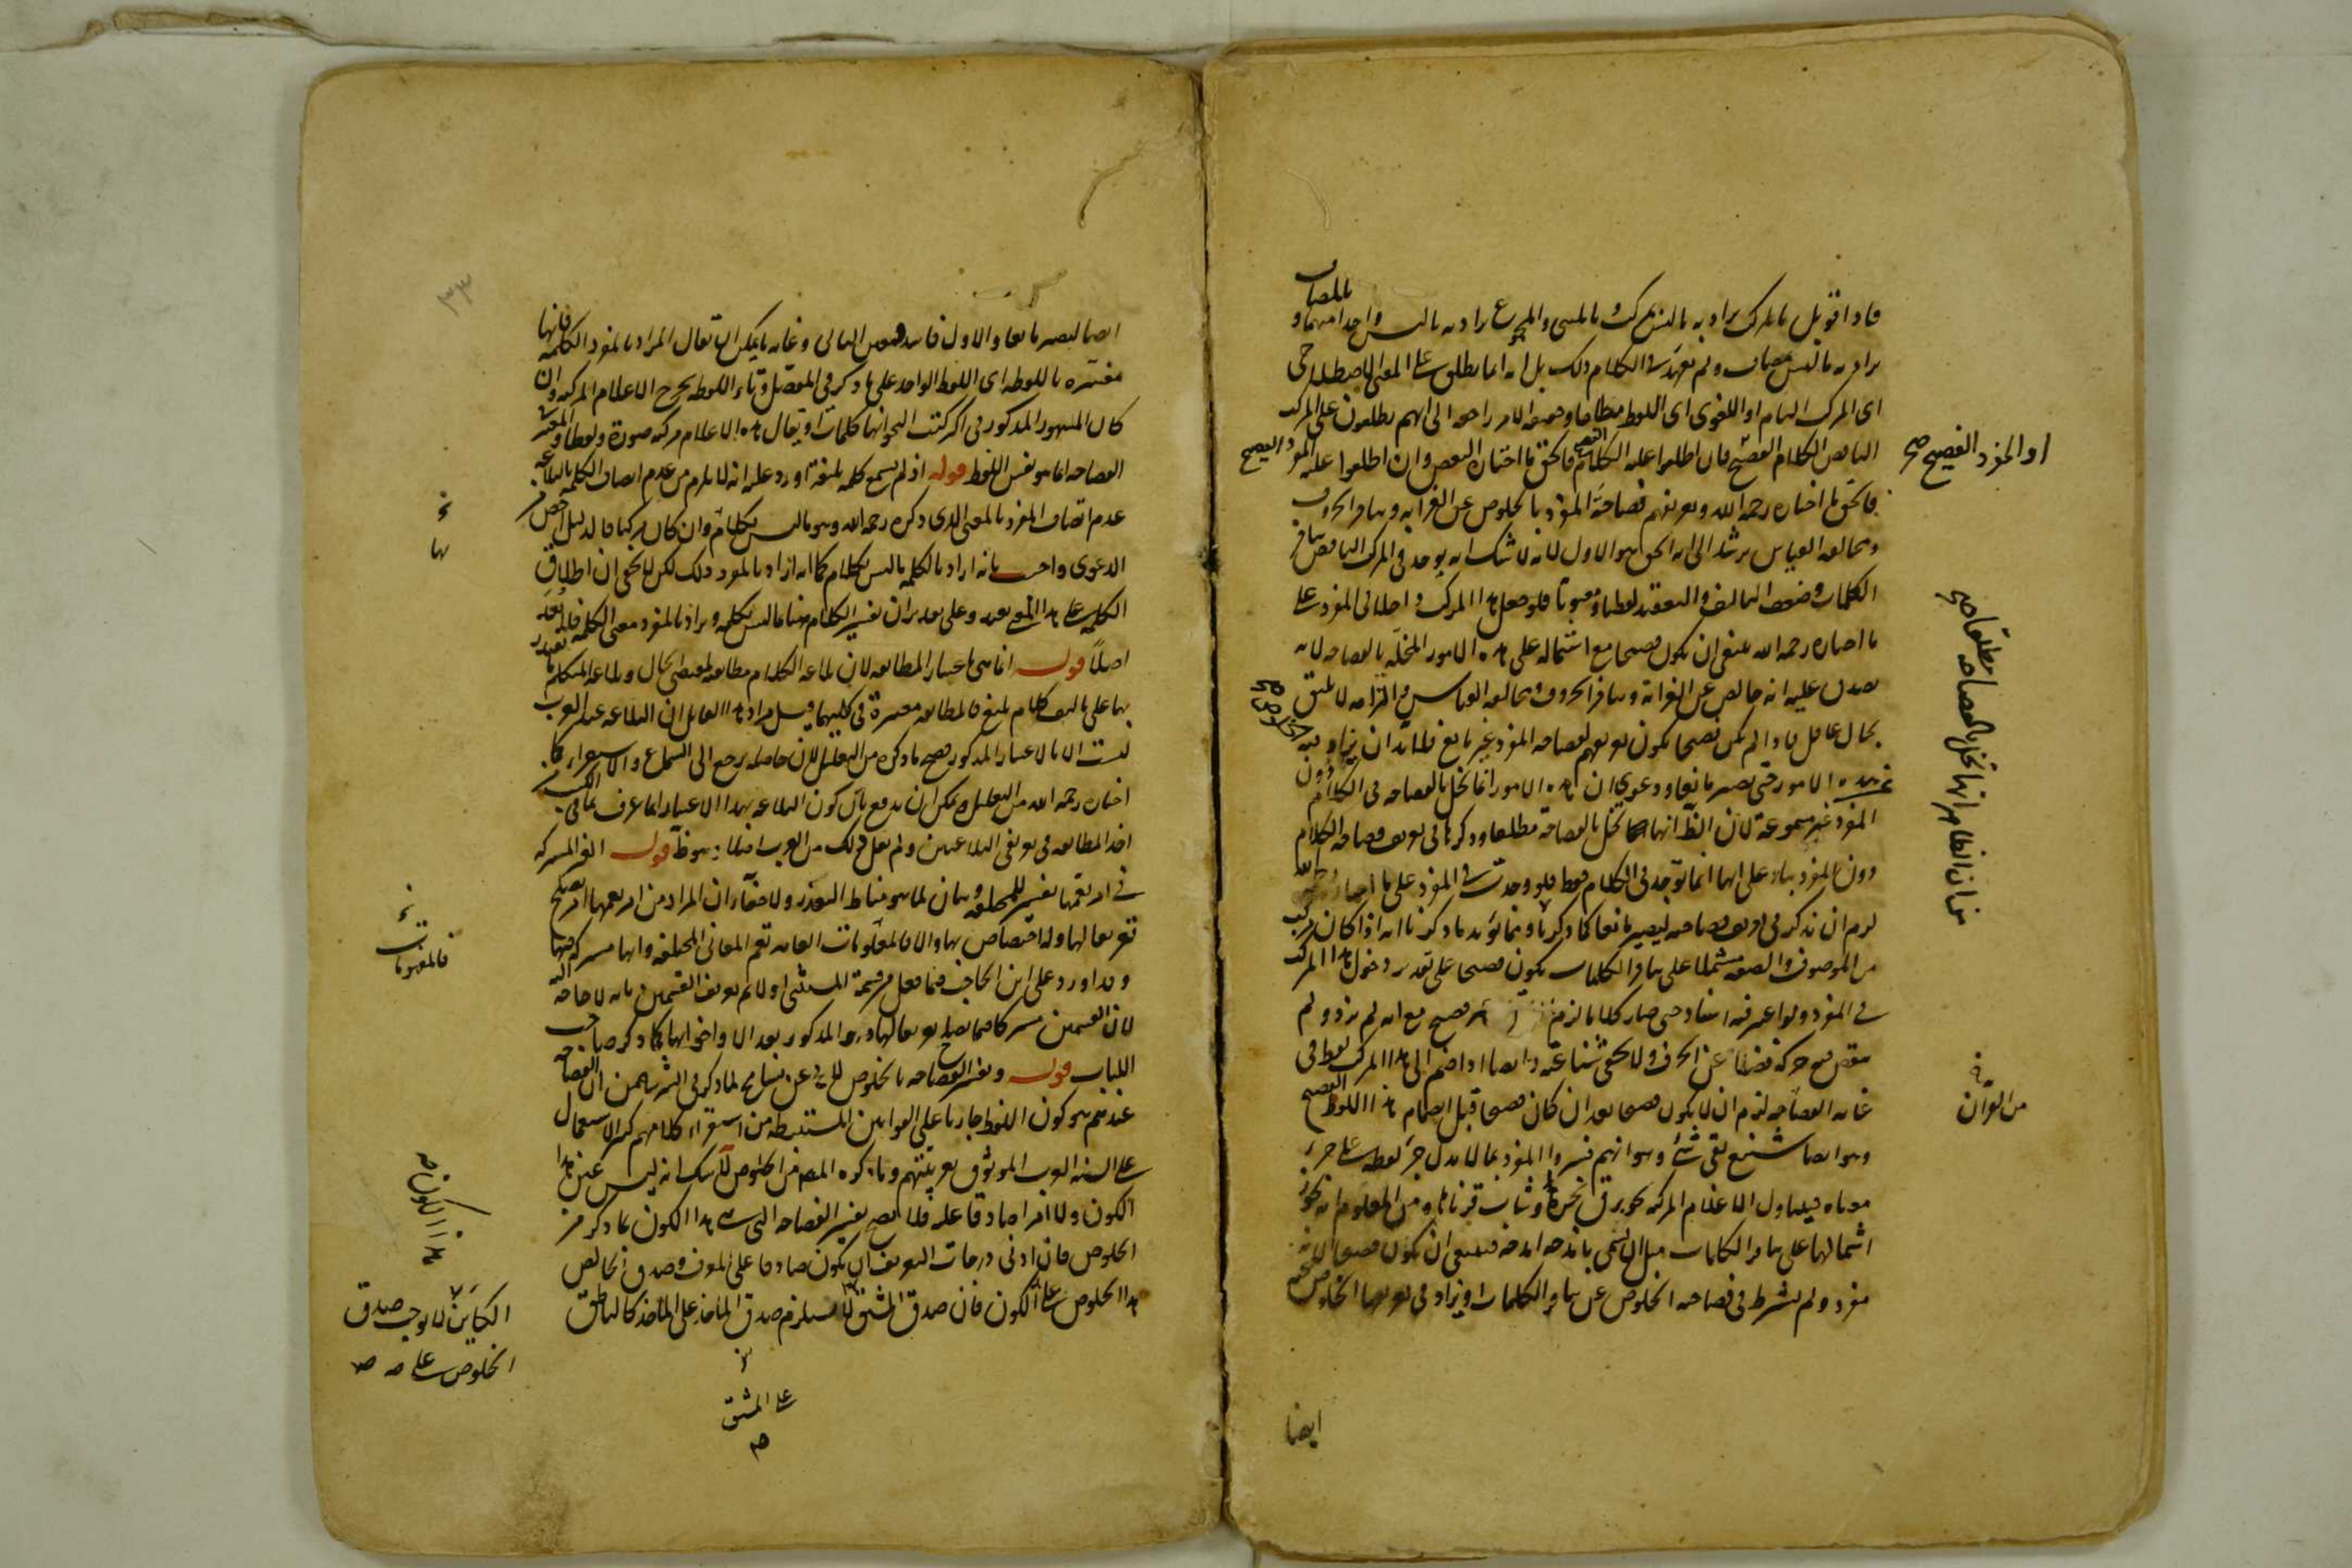 فاذا قوبل بالمركب يراد به ما ليس بمركب وبالمثنى والمجموع يراد به ما ليس واحدا منهما وبالمضاف
يراد به ما ليس بمضاف ولم يعهد في الكلام ذلك بل انه انما يطلق على المعنى الاصطلاحي
اى المركب التام او اللغوى اى اللفظ مطلقا وحقيقة الامر راجعة الى انهم يطلقون على المركب
الناقص الكلام الفصيح فان اطلقوا عليه الكلام الفصيح فالحق ما اختاره البعض وان اطلقوا عليه المفرد الفصيح
فالحق ما اختاره رحمه الله وتعريفهم فصاحة المفرد بالخلوص عن الغرابة وتنافر الحروف
ومخالفة القياس يرشد الى انه الحق هو الاول لانه لا شك انه يوجد في المركب الناقص تنافر
الكلمات وضعف التاليف والتعقيد لفظا ومعنويا فلو جعل هذا المركب داخلا في المفرد على
ما اختاره رحمه الله ينبغى ان يكون فصيحا مع اشتماله على هذه الامور المخلة بالفصاحة لانه
يصدق عليه انه خالص عن الغرابة وتنافر الحروف ومخالفة القياس والتزامه لا يليق
بحال عاقل فاذا لم يكن فصيحا يكون تعريفهم لفصاحة المفرد غير مانع فلا بد ان يزاد فيه الخلوص
عن هذه الامور حتى يصير مانعا ودعوى ان هذه الامور انما تخل بالفصاحة في الكلام دون
المفرد غير مسموعة لان الظ انها تخل بالفصاحة مطلقا وذكرها في تعريف فصاحة الكلام
دون المفرد بناء على انها انما توجد في الكلام فقط فلو وجدت في المفرد على ما اختاره رحمه الله
لزم ان يذكر في تعريف فصاحته ليصير مانعا كما ذكرنا ومما يؤيد ما ذكرنا انه اذا كان مركب
من الموصوف والصفة مشتملا على تنافر الكلمات يكون فصيحا على تقدير دخول هذا المركب
في المفرد ولو اعتبر فيه اسناد حتى صار كلاما لزم فصيح مع انه لم يزد ولم
ينقص فيه حركة فضلا عن الحرف ولا يخفى شناعته وايضا اذا ضم الى هذا المركب لفظ في
غاية الفصاحة لزم ان لا يكون فصيحا بعد ان كان فصيحا قبل انضمام هذا اللفظ الفصيح
وهو ايضا شنيع بقى شئ وهو انهم فسروا المفرد بما لا يدل جزء لفظه على جزء
معناه فيتناول الاعلام المركبة نحو برق نحره وشاب قرناها ومن المعلوم انه يجوز
اشتمالها على تنافر الكلمات مثل ان يسمى بامدحه امدحه فينبغى ان يكون فصيحا لانه
مفرد ولم يشترط في فصاحته الخلوص عن تنافر الكلمات او يزاد في تعريفها الخلوص عنه
او المفرد الفصيح صح
من ان الظاهر انها تخل بالفصاحة مطلقا صح
من القرآن
الخلوص صح
ايضا
٣٣
ايضا ليصير مانعا والاول فاسد فتعين الثانى وغاية ما يمكن ان يقال المراد بالمفرد الكلمة فانها
مفسرة باللفظة اى اللفظ الواحد على ما ذكر في المفصل وتاء اللفظة يخرج الاعلام المركبة وان
كان المشهور المذكور في اكثر كتب النحو انها كلمات او يقال هذه الاعلام مركبة صورة ولفظا والمعتبر
الفصاحة انما هو نفس اللفظ قوله اذ لم يسمع كلمة بليغة اورد عليه انه لا يلزم من عدم اتصاف الكلمة بالبلاغة
عدم اتصاف المفرد بالمعنى الذى ذكره رحمه الله وهو ما ليس بكلام وان كان مركبا فالدليل اخص من
الدعوى واجيب بانه اراد بالكلمة ما ليس بكلام كما انه اراد بالمفرد ذلك لكن لا يخفى ان اطلاق
الكلمة على هذا المعنى بعيد وعلى تقدير ان تفسير الكلام هنا بما ليس بكلمة ويراد بالمفرد معنى الكلمة فلا بعد
اصلا قوله انما هي باعتبار المطابقة لان بلاغة الكلام مطابقته لمقتضى الحال وبلاغة المتكلم ما يقتدر
بها على تاليف كلام بليغ فالمطابقة معتبرة في كليهما وقيل مراد هذا القائل ان البلاغة عند العرب
ليست الا بالاعتبار المذكور فصح ما ذكره من التعليل لان حاصله يرجع الى السماع والاستقراء كما
اختاره رحمه الله من التعليل ويمكن ان يدفع بان كون البلاغة بهذا الاعتبار انما عرف بما في الكتب من
اخذ المطابقة في تعريفى البلاغتين ولم ينقل ذلك من العرب اصلا وهو ظ قوله الغير المشتركة
في امر يعمها تفسير للمختلفة وبيان لما هو مناط التعذر ولا خفاء ان المراد من امر يعمها امر يصلح
تعريفا لها وله اختصاص بها والا فالمفهومات العامة تعم المعانى المختلفة وانها مشتركة فيها
وقد اورد على ابن الحاجب فيما فعل من قسمة المستثنى اولا ثم تعريف القسمين بانه لا حاجة اليه
لان القسمين مشتركان فيما يصلح تعريفا لهما وهو المذكور بعد الا واخواتها كما ذكر صاحب
اللباب قوله وتفسير الفصاحة بالخلوص لا يخ عن تسامح لما ذكر في الشرح من ان الفصاحة
عندهم هو كون اللفظ جاريا على القوانين المستنبطة من استقراء كلامهم كثير الاستعمال
على السنة العرب الموثوق بعربيتهم وما ذكره المص من الخلوص لا شك انه ليس عين هذا
الكون ولا امرا صادقا عليه فلا يصح تفسير الفصاحة التى هي هذا الكون بما ذكر من
الخلوص فان ادنى درجات التعريف ان يكون صادقا على المعرف وصدق الخالص
هذا الخلوص على الكون فان صدق المشتق لا يستلزم صدق الماخذ على الماخذ كالناطق
فالمفهومات
هذا الكون صح
الكائن لا يوجب صدق
الخلوص على صح
على المشتق
صح